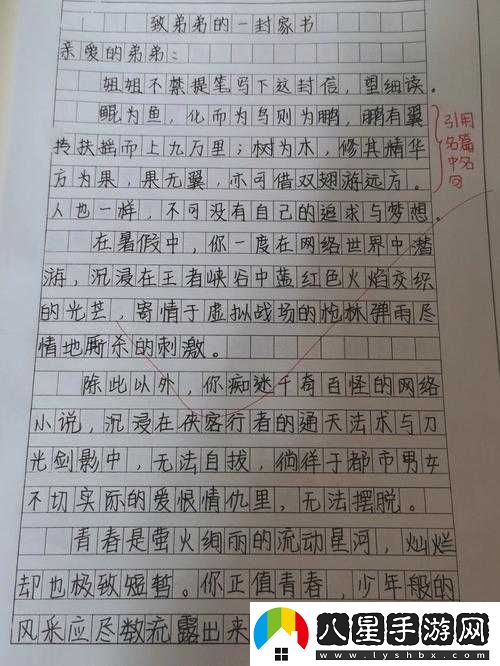 致弟弟的一封家书
亲爱的弟弟：
姐姐不禁提笔写下这封信，望细读。
鲲为鱼，化而为鸟则为鹏，鹏有翼
抟扶摇而上九万里；树为木，修其精华
方为果，果无翼，亦可借双翅游远方。
人也一样，不可没有自己的追求与梦想。
引用
名篇
中名
句
在暑假中，你一度在网络世界中潜
游，沉浸在王者峡谷中蓝红色火焰交织
的光芒，寄情于虚拟战场的枪林弹雨尽
情地厮杀的刺激。
除此以外，你痴迷千奇百怪的网络
小说，沉浸在侠客行者的通天法术与刀
光剑影中，无法自拔，徜徉于都市男女
不切实际的爱恨情仇里，无法摆脱。
青春是萤火绚丽的流动星河，灿烂
却也极致短暂。你正值青春，少年般的
风采应尽数流露出来
八星手游网
www.lyshbx.com